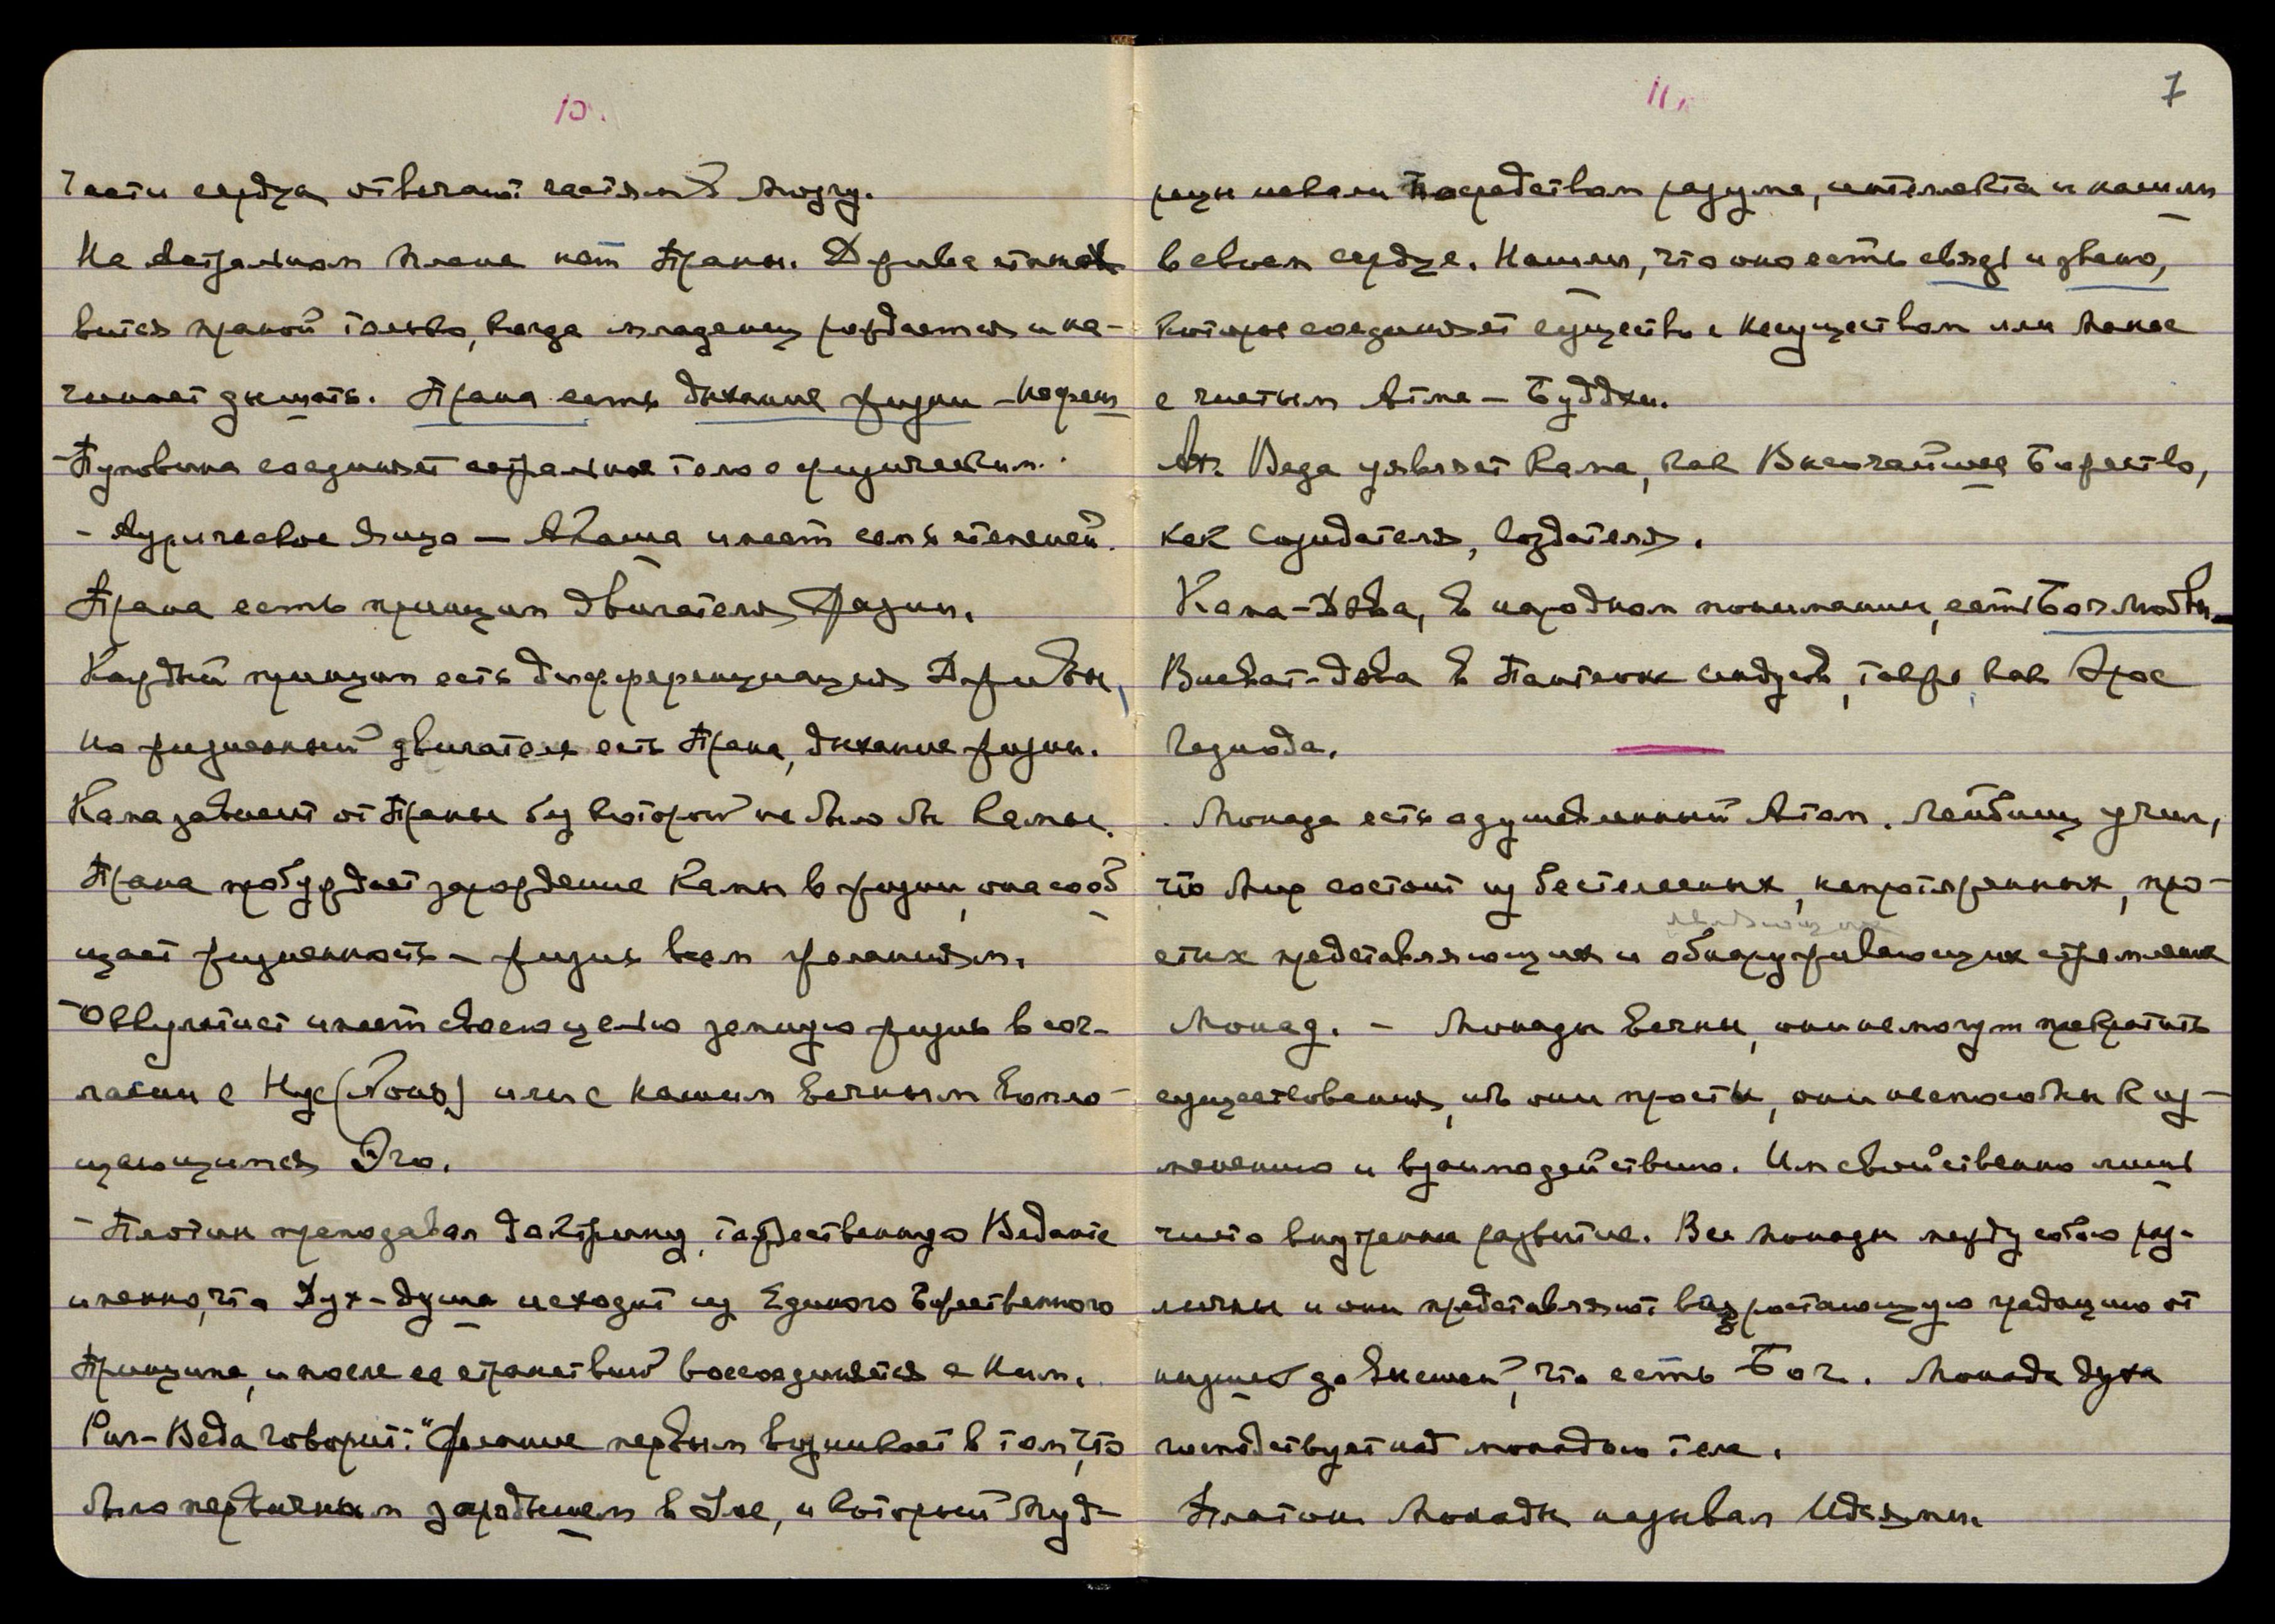 10.
части сердца отвечают частям мозгу.
На Астральном плане нет Праны. Джива станов
вится праной только, когда младенец рождается и на-
чинает дышать. Прана есть дыхание жизни - Нефеш
- Пуповина соединяет астральное тело с физическим.
- Аурическое Яйцо — Акаша имеет семь степеней.
Прана есть принцип двигателя Жизни.
Каждый принцип есть дифференциация Дживы,
но жизненный двигатель есть Прана, дыхание жизни.
Кама зависит от Праны без которой не было бы Камы.
Прана пробуждает зарождение Камы в жизни, она сооб
щает жизненность - жизнь всем желаниям.
- Оккультист имеет своею целью земную жизнь в сог-
ласии с Нус (Ноус) или с нашим Вечным Вопло-
щающимся Эго.
- Плотин преподавал доктрину, тождественную Веданте
именно, что Дух-душа исходит из Единого Божественного
Принципа, и после ее странствий воссоединяется с Ним.
Риг-Веда говорит: "Желание первым возникает в том, что
было первичным зародышем в Уме, и который Муд-
11.
7
рецы искали посредством разума, интеллекта и нашли
в своем сердце. Нашли, что оно есть связь и звено,
которое соединяет существо с несуществом или Манас
с чистым Атма - Буддхи.
Ат. Веда уявляет Кама, как Высочайшее Божество,
как Созидателя, Создателя.
Кама-Дэва, в народном понимании, есть Бог Любви -
Висват-дэва в Пантеоне индусов, также как Эрос
Гезиода.
Монада есть одушевленный Атом. Лейбниц учил,
что Мир состоит из бестелесных, непротяженных, про-
стых представляющих и обнаруживающих стремление
Монад. - Монады вечны, они не могут прекратить
существования, ибо они просты, они неспособны к из-
менению и взаимодействию. Им свойственно лишь
чисто внутреннее развитие. Все монады между собою раз-
личны и они представляют возрастающую градацию от
низшей до высшей, что есть Бог. Монада духа
господствует над монадою тела.
Платон Монады называл Идеями.